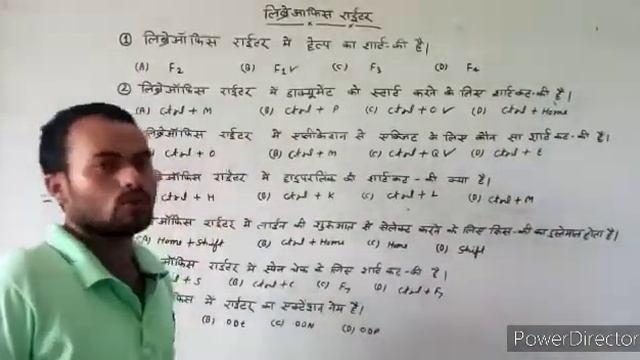 लिब्रेऑफिस राईटर
① लिब्रेऑफिस राईटर में हेल्प का शार्ट-की है।
(A) F2 (B) F1✓ (C) F3 (D) F4
② लिब्रेऑफिस राईटर में डाक्यूमेंट को स्टार्ट करने के लिए शार्टकट-की है।
(A) Ctrl + M (B) Ctrl + P (C) Ctrl + O ✓ (D) Ctrl + Home
लिब्रेऑफिस राईटर में एप्लीकेशन से एक्जिट के लिए कौन सा शार्टकट-की है।
Ctrl + O (B) Ctrl + M (C) Ctrl + Q ✓ (D) Ctrl + E
ब्रेऑफिस राईटर में हाइपरलिंक की शार्टकट-की क्या है।
Ctrl + H (B) Ctrl + K (C) Ctrl + L (D) Ctrl + M
ऑफिस राईटर में लाईन की शुरुआत से सेलेक्ट करने के लिए किस-की का इस्तेमाल होता है।
(A) Home + Shift (B) Ctrl + Home (C) Home (D) Shift
ऑफिस राईटर में स्पेल चेक के लिए शार्टकट-की है।
+ S (B) Ctrl + C (C) F7 (D) Ctrl + F7
फिस में राईटर का एक्सटेंशन नेम है।
(B) ODC (C) ODN (D) ODP
PowerDirector